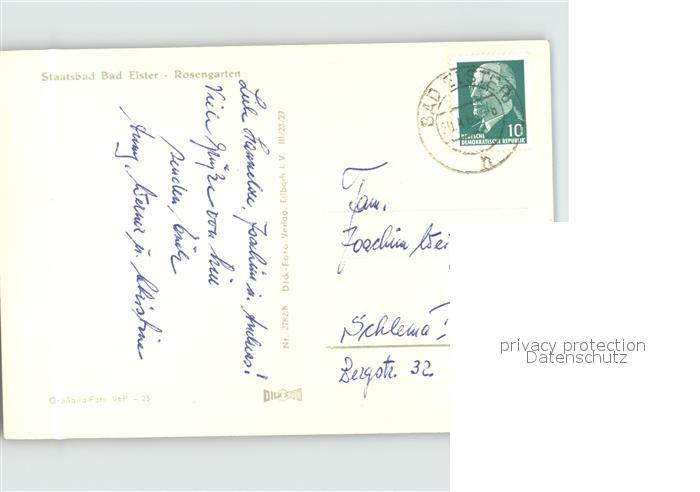 Staatsbad Bad Elster - Rosengarten
Liebe Hannelore, Joachim u. Andreas!
Viele Grüße von hier
senden Euch
Anny, Werner u. Christine
Nr. 2782/8 Dick-Foto Verlag, Erlbach i. V. III/23/27
BAD ELSTER
h
10
DEUTSCHE
DEMOKRATISCHE REPUBLIK
Fam.
Joachim Wei
Schlema
Bergstr. 32.
privacy protection
Datenschutz
- 25